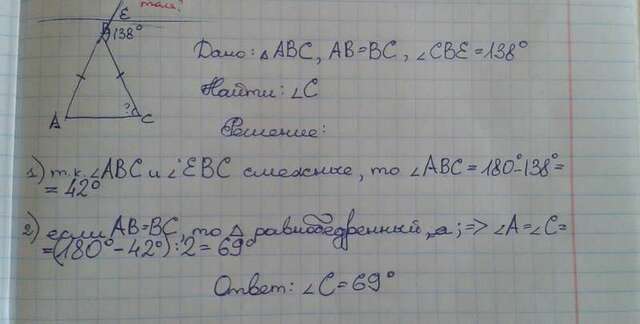 E
B 138°
A ? C
Дано: △ABC, AB=BC, ∠CBE=138°
Найти: ∠C
Решение:
1) т.к. ∠ABC и ∠EBC смежные, то ∠ABC = 180°-138°=
= 42°
2) если AB=BC, то △ равнобедренный, а; => ∠A=∠C=
=(180°-42°):2=69°
Ответ: ∠C=69°